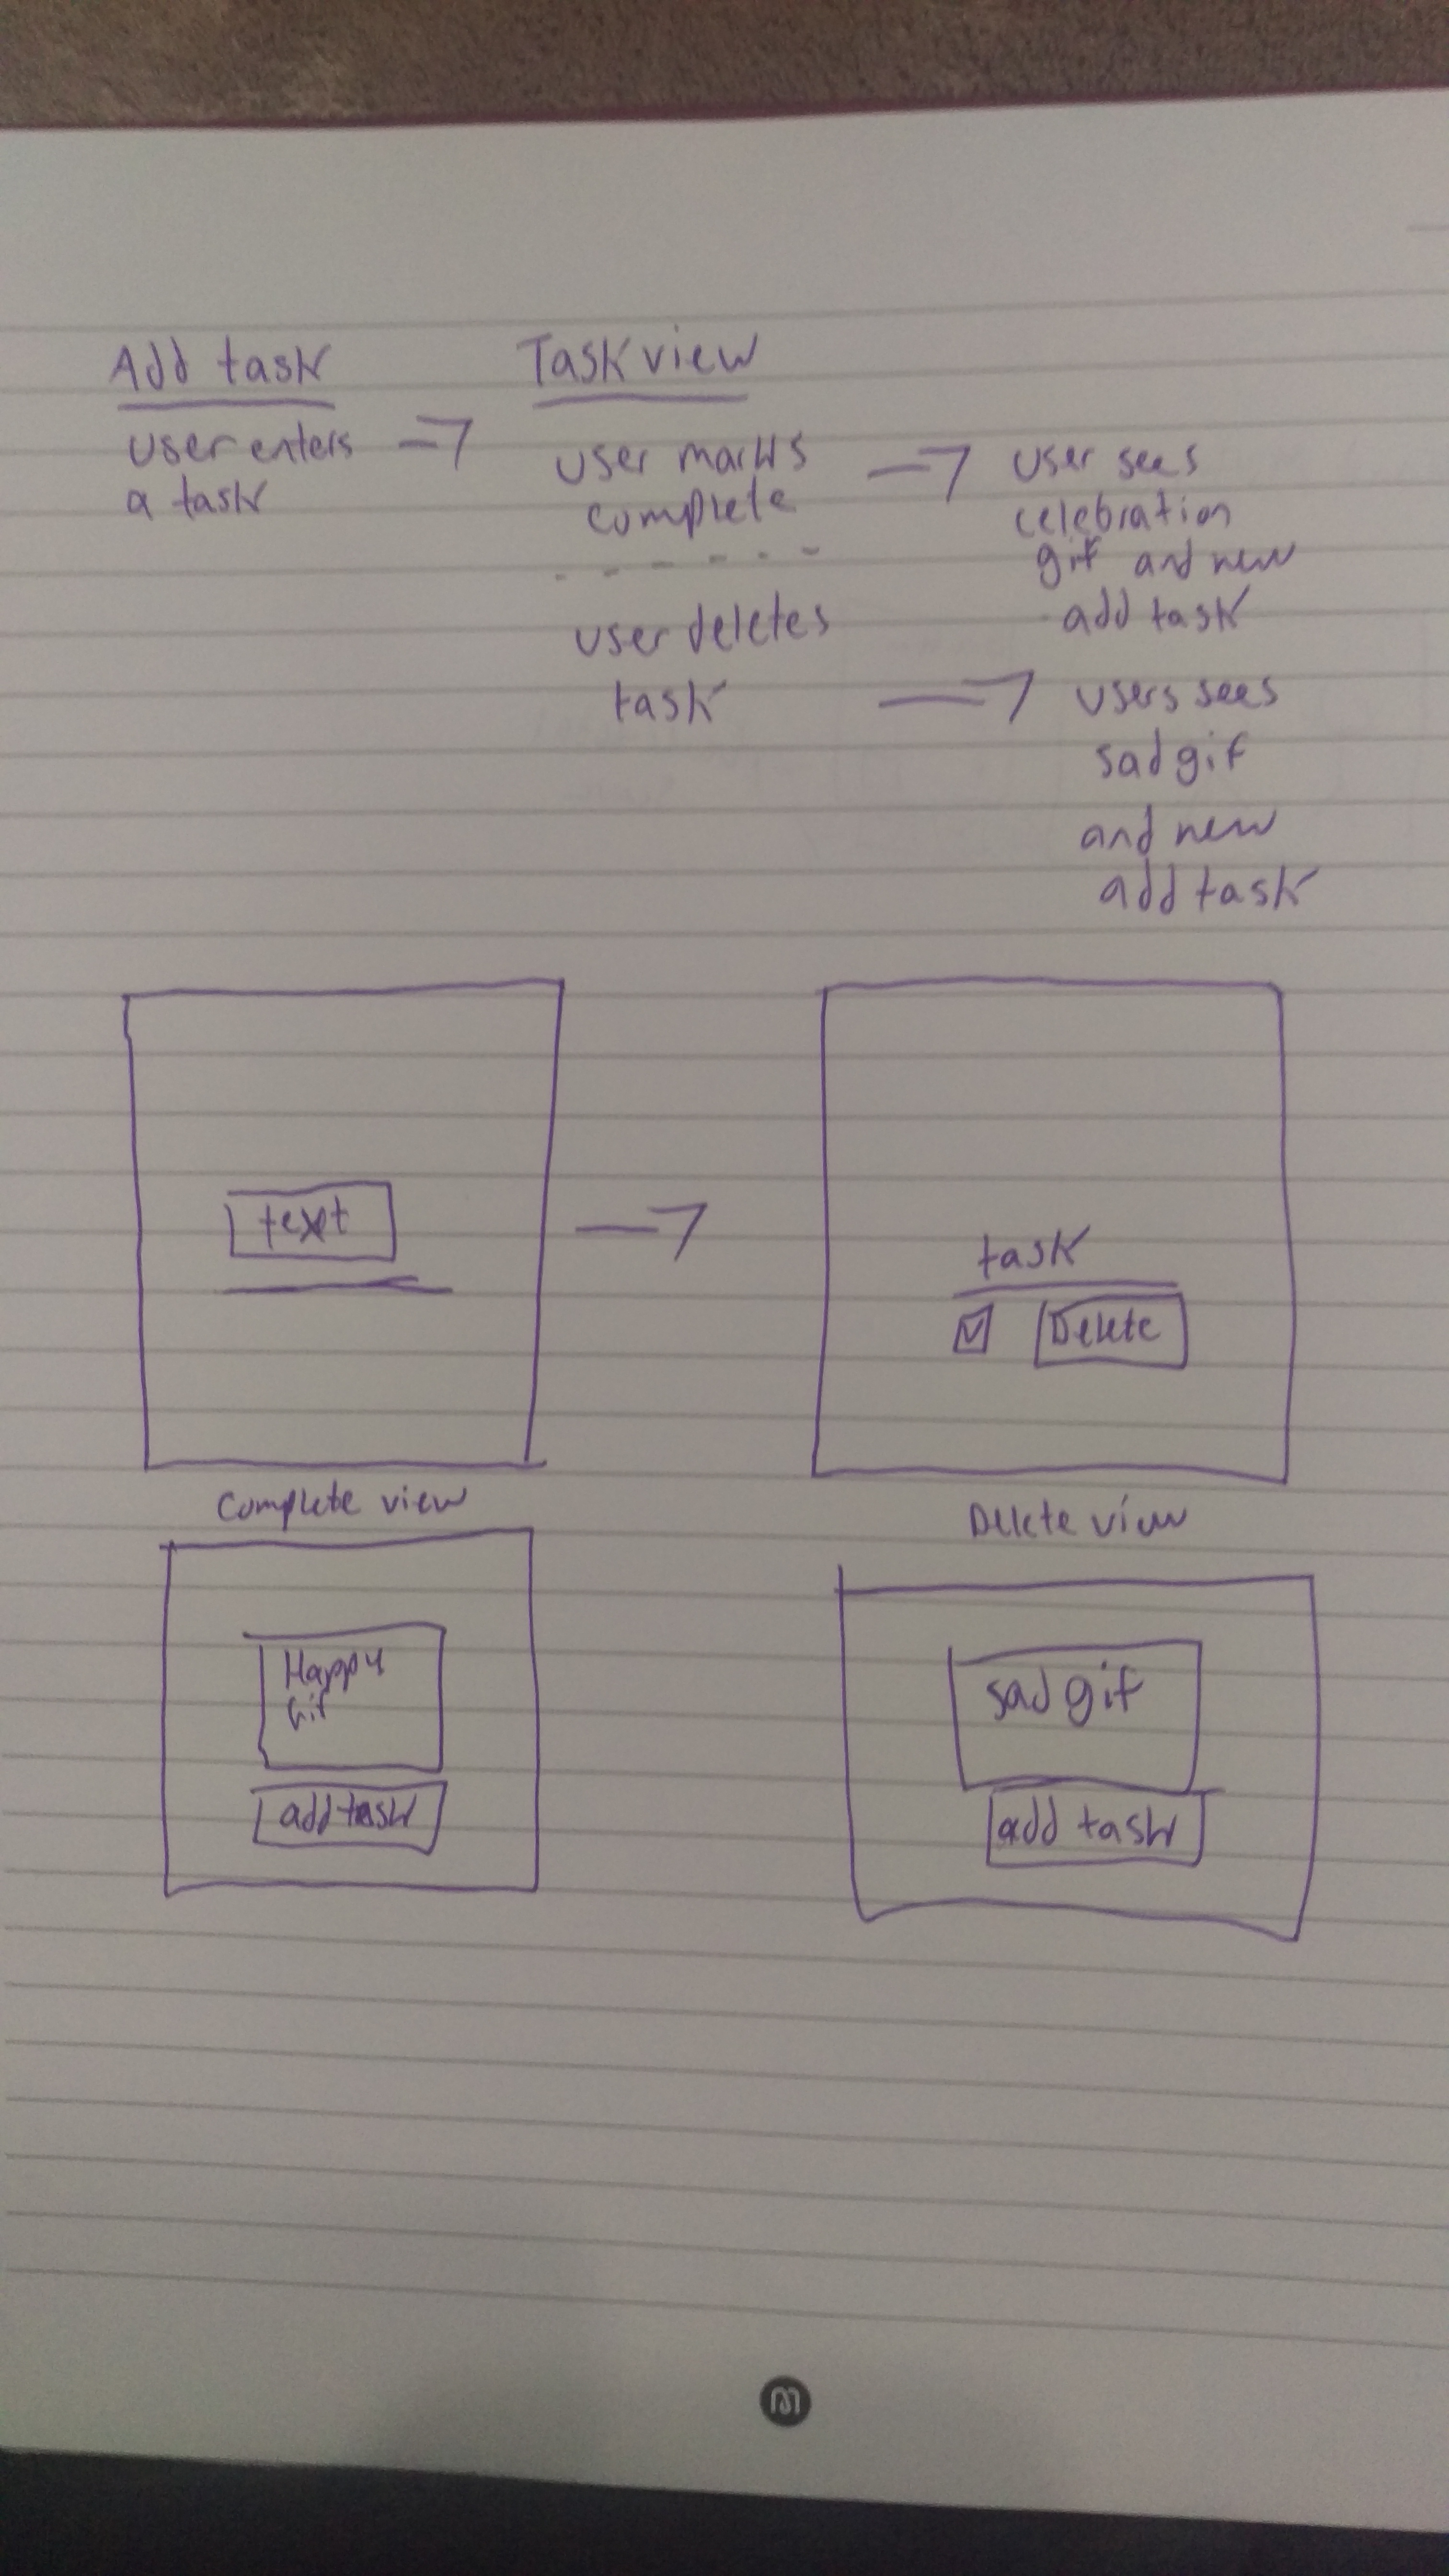 Add task
user enters
a task
Task view
user marks
complete
user deletes
task
user sees
celebration
gif and new
add task
users sees
sad gif
and new
add task
text
task
Delete
Complete view
Happy
Gif
add task
Delete view
sad gif
add task